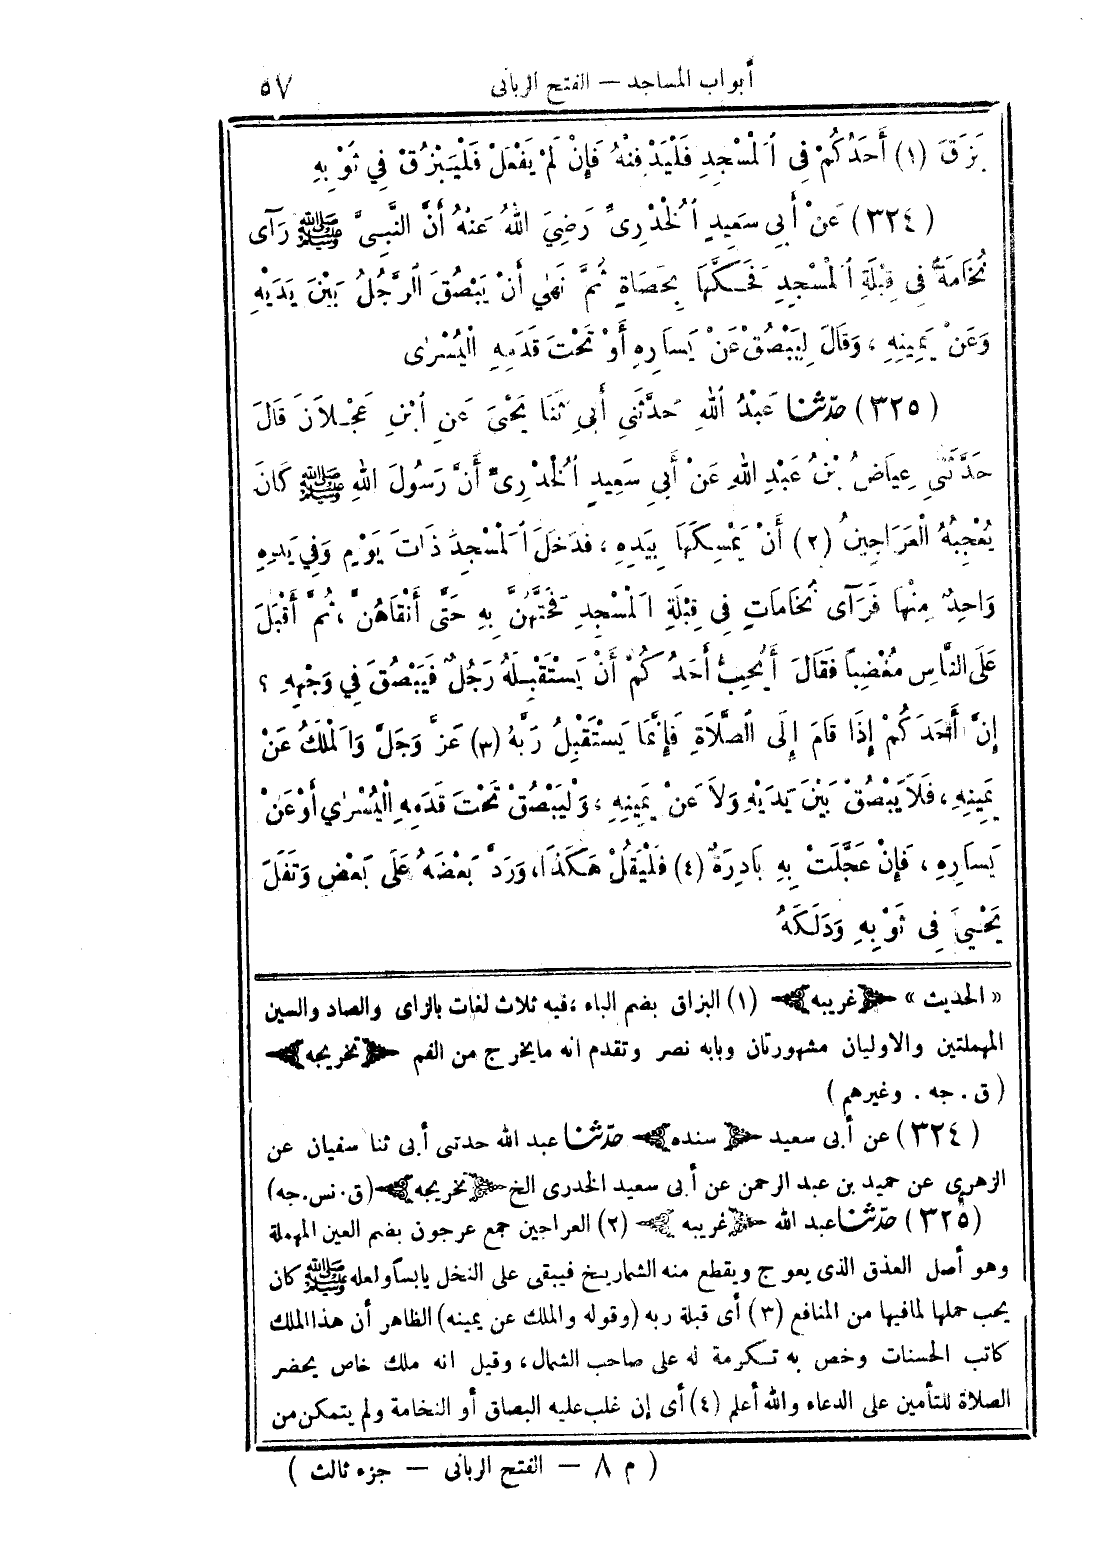 أبواب المساجد — الفتح الربانى ٥٧
بَزَقَ (١) أَحَدُكُمْ فِى ٱلْمَسْجِدِ فَلْيَدْفِنْهُ فَإِنْ لَمْ يَفْعَلْ فَلْيَبْزُقْ فِي ثَوْبِهِ
(٣٢٤) عَنْ أَبِى سَعِيدٍ ٱلْخُدْرِىِّ رَضِيَ اللهُ عَنْهُ أَنَّ النَّبِىَّ ﷺ رَآى
نُخَامَةً فِي قِبْلَةِ ٱلْمَسْجِدِ فَحَكَّهَا بِحَصَاةٍ ثُمَّ نَهٰى أَنْ يَبْصُقَ ٱلرَّجُلُ بَيْنَ يَدَيْهِ
وَعَنْ يَمِينِهِ ، وَقَالَ لِيَبْصُقْ عَنْ يَسَارِهِ أَوْ تَحْتَ قَدَمِهِ الْيُسْرٰى
(٣٢٥) حدّثنا عَبْدُ ٱللهِ حَدَّثَنِى أَبِى ثَنَا يَحْيَى عَنِ ابْنِ عَجْلَانَ قَالَ
حَدَّثَنِى عِيَاضُ بْنُ عَبْدِ اللهِ عَنْ أَبِي سَعِيدٍ ٱلْخُدْرِىِّ أَنَّ رَسُولَ اللهِ ﷺ كَانَ
يُعْجِبُهُ الْعَرَاجِينُ (٢) أَنْ يَمْسِكَهَا بِيَدِهِ ، فَدَخَلَ ٱلْمَسْجِدَ ذَاتَ يَوْمٍ وَفِي يَدِهِ
وَاحِدٌ مِنْهَا فَرَآى نُخَامَاتٍ فِي قِبْلَةِ ٱلْمَسْجِدِ فَحَتَّهُنَّ بِهِ حَتَّى أَنْقَاهُنَّ ، ثُمَّ أَقْبَلَ
عَلَى النَّاسِ مُغْضِبًا فَقَالَ أَيُحِبُّ أَحَدُكُمْ أَنْ يَسْتَقْبِلَهُ رَجُلٌ فَيَبْصُقَ فِي وَجْهِهِ ؟
إِنَّ أَحَدَكُمْ إِذَا قَامَ إِلَى ٱلصَّلَاةِ فَإِنَّمَا يَسْتَقْبِلُ رَبَّهُ (٣) عَزَّ وَجَلَّ وَٱلْمَلَكُ عَنْ
يَمِينِهِ ، فَلَا يَبْصُقْ بَيْنَ يَدَيْهِ وَلَا عَنْ يَمِينِهِ ، وَلْيَبْصُقْ تَحْتَ قَدَمِهِ الْيُسْرٰي أَوْ عَنْ
يَسَارِهِ ، فَإِنْ عَجَّلَتْ بِهِ بَادِرَةٌ (٤) فَلْيَقُلْ هَكَذَا، وَرَدَّ بَعْضَهُ عَلَى بَعْضٍ وَتَفَلَ
يَحْيىَ فِى ثَوْبِهِ وَدَلَكَهُ
« الحديث » ﴿غريبه﴾ (١) البزاق بضم الباء ، فيه ثلاث لغات بالزاى والصاد والسين
المهملتين والاوليان مشهورتان وبابه نصر وتقدم انه مايخرج من الفم ﴿تخريجه﴾
(ق . جه . وغيرهم)
(٣٢٤) عن أبى سعيد ﴿سنده﴾ حدّثنا عبد الله حدثنى أبى ثنا سفيان عن
الزهرى عن حميد بن عبد الرحمن عن أبى سعيد الخدرى الخ ﴿تخريجه﴾ (ق . نس . جه)
(٣٢٥) حدّثنا عبد الله ﴿غريبه﴾ (٢) العراجين جمع عرجون بضم العين المهملة
وهو أصل العذق الذى يعوج ويقطع منه الشماريخ فيبقى على النخل يابسا ولعله ﷺ كان
يحب حملها لمافيها من المنافع (٣) أى قبلة ربه (وقوله والملك عن يمينه) الظاهر أن هذا الملك
كاتب الحسنات وخص به تكرمة له على صاحب الشمال، وقيل انه ملك خاص يحضر
الصلاة للتأمين على الدعاء والله أعلم (٤) أى إن غلب عليه البصاق أو النخامة ولم يتمكن من
(م ٨ — الفتح الربانى — جزء ثالث)